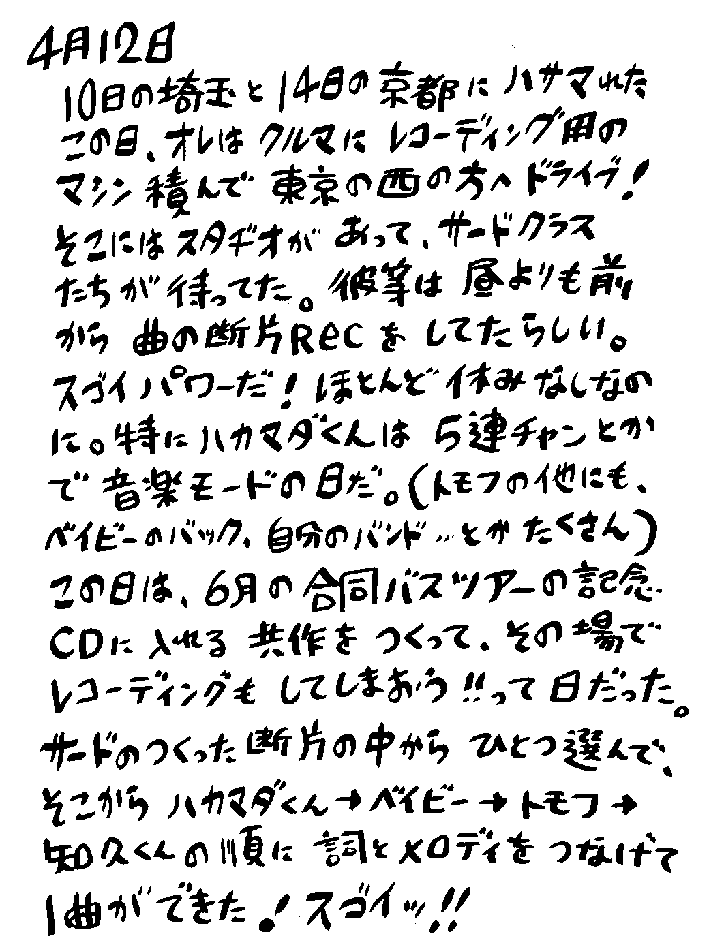 4月12日
10日の埼玉と14日の京都にハサマれた
この日、オレはクルマにレコーディング用の
マシン積んで東京の西の方へドライブ!
そこにはスタヂオがあって、サードクラス
たちが待ってた。彼等は昼よりも前
から曲の断片Recをしてたらしい。
スゴイパワーだ!ほとんど休みなしなの
に。特にハカマダくんは5連チャンとか
で音楽モードの日だ。(トモフの他にも、
ベイビーのバック、自分のバンド…とかたくさん)
この日は、6月の合同バスツアーの記念
CDに入れる共作をつくって、その場で
レコーディングもしてしまおう!!って日だった。
サードのつくった断片の中からひとつ選んで、
そこからハカマダくん→ベイビー→トモフ→
知久くんの順に詞とメロディをつなげて
1曲ができた!スゴイッ!!